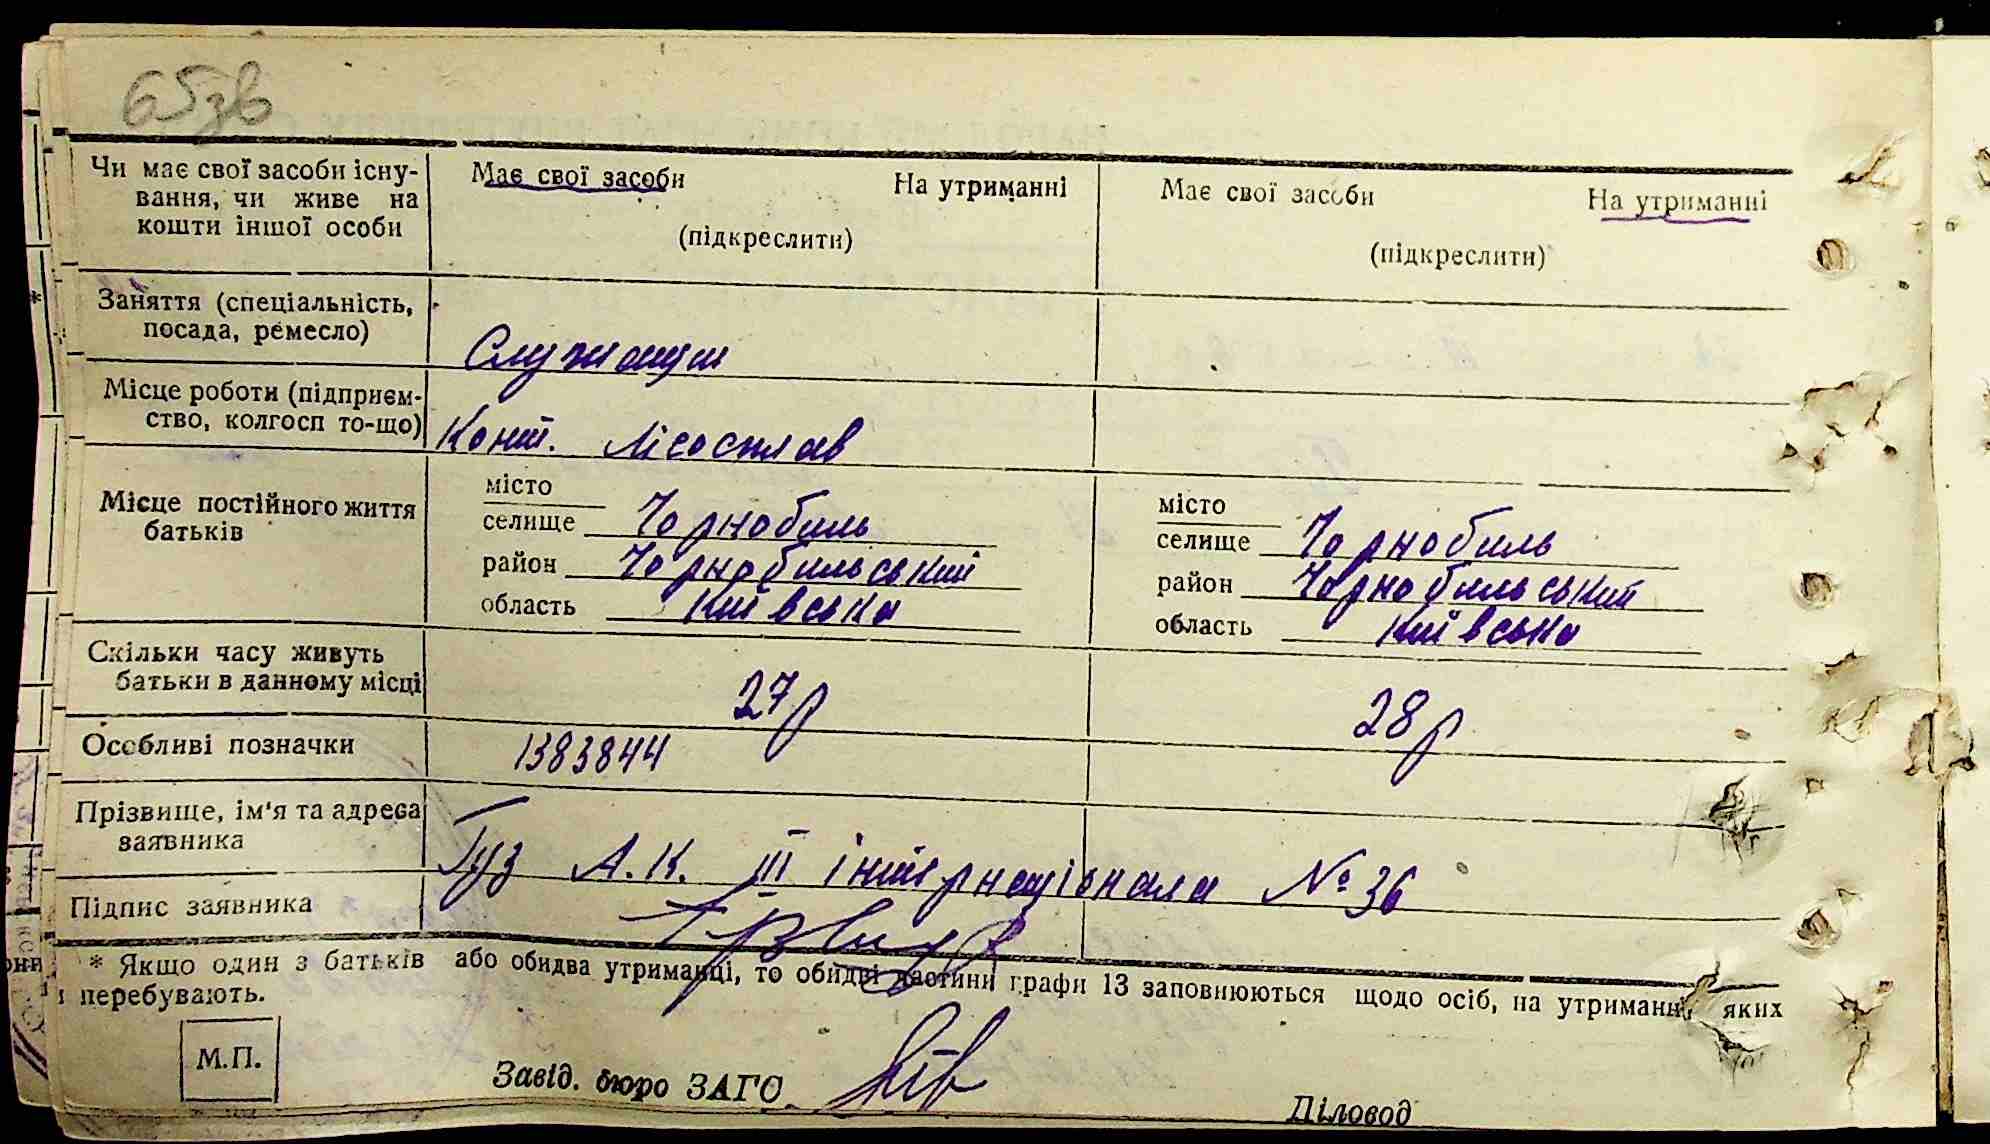 65зв
Чи має свої засоби існу-
вання, чи живе на
кошти іншої особи
Має свої засоби На утриманні
(підкреслити)
Має свої засоби На утриманні
(підкреслити)
Заняття (спеціальність,
посада, ремесло)
Служащи
Місце роботи (підприєм-
ство, колгосп то-що)
Конт. Лісосплав
Місце постійного життя
батьків
місто
селище Чорнобиль
район Чорнобильський
область Київська
місто
селище Чорнобиль
район Чорнобильський
область Київська
Скільки часу живуть
батьки в данному місці
27р
28р
Особливі позначки
1383844
Прізвище, ім'я та адреса
заявника
Гуз А.К. III інтернаціонала № 36
Підпис заявника
* Якщо один з батьків або обидва утриманці, то обидві частини графи 13 заповнюються щодо осіб, на утриманні яких
перебувають.
М.П.
Завід. бюро ЗАГС
Діловод